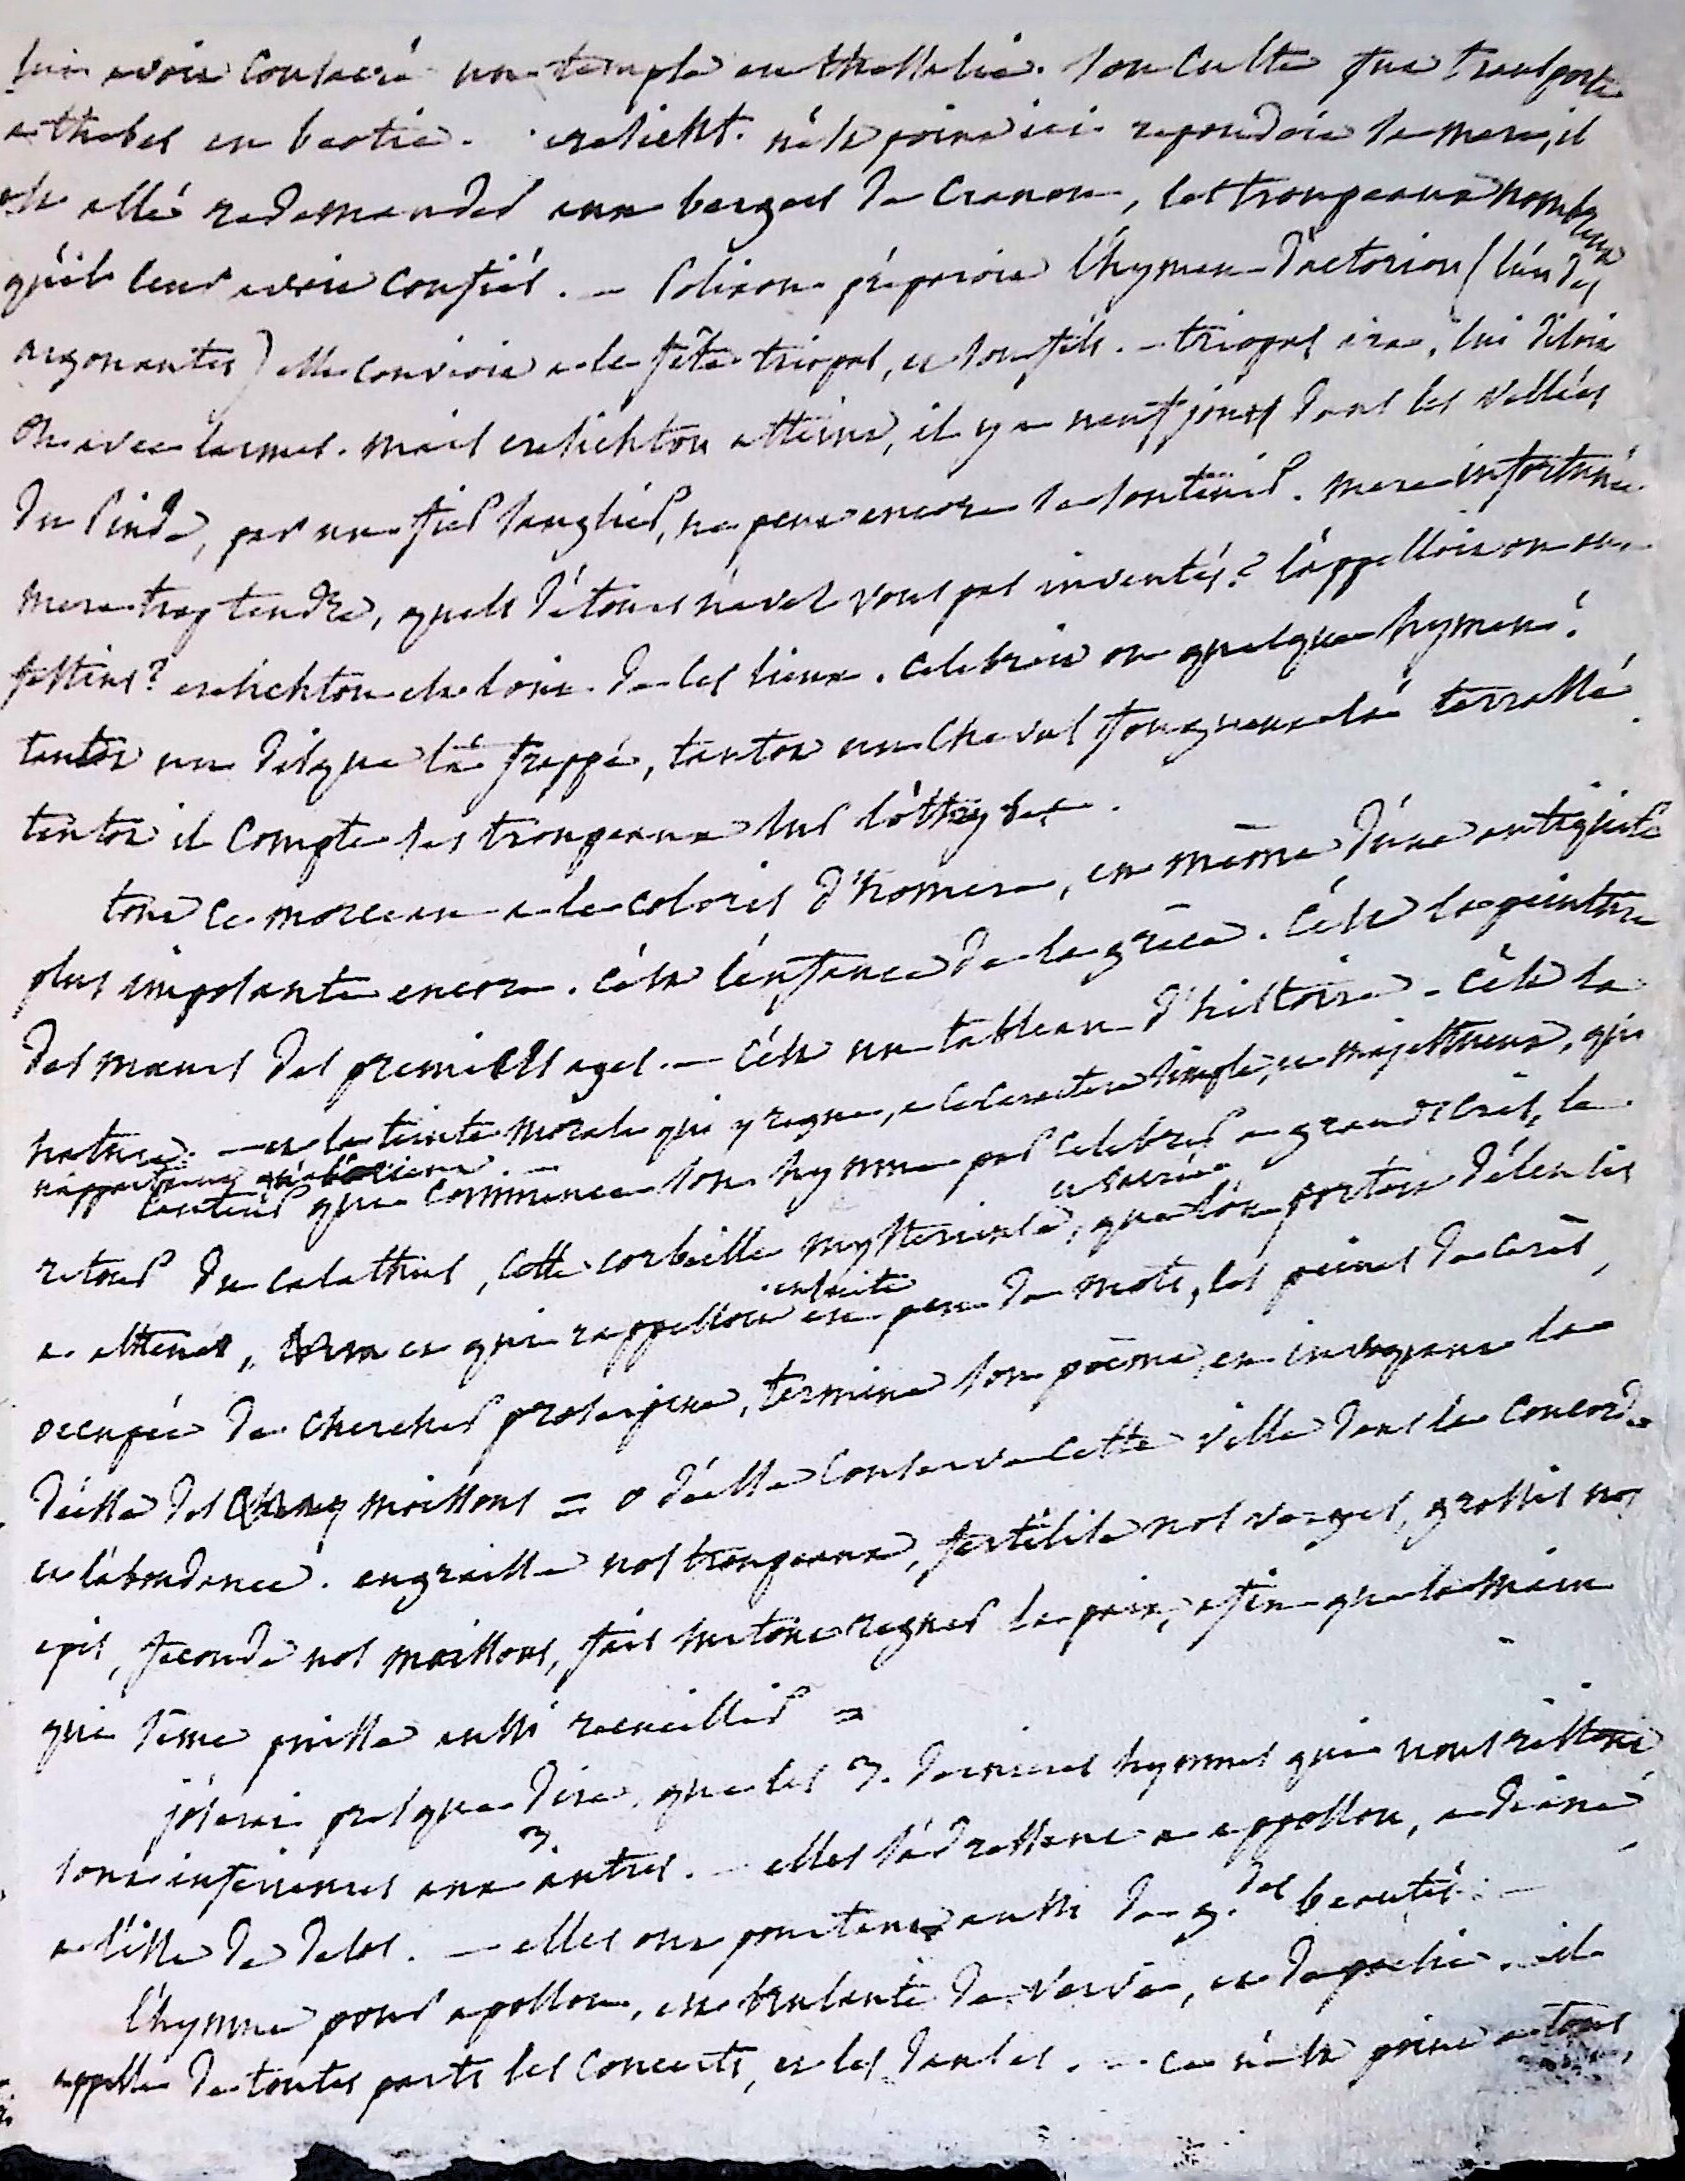 lui avoir consacré un temple en thessalie. son culte fut transporté
a thebes en beotie. eresicht. n'est point ici repondoit sa mere, il
est allé redemander aux bergers de cranon, les troupeaux nombreux
qu'il leur avoit confiés. — Polixone préparoit l'hymen d'actorion (l'un des
argonautes) elle convioit a la fête triopas, et son fils. — triopas ira, lui disoit
on avec larmes. mais eresichton atteint, il y a neuf jours dans les vallées
du Pinde, par un fier sanglier, ne peut encore se soutenir. mere infortunée
mere trop tendre, quels détours n'avez vous pas inventés? l'appelloit on aux
festins? eresichton est loin de ces lieux. celebroit on quelque hymené?
tantôt un disque l'a frappé, tantot un cheval fougueux l'a terrassé
tantot il compte ses troupeaux sur l'othrys.
tout ce morceau a le coloris d'homere, et même d'une antiquité
plus imposante encore. c'est l'enfance de la grèce. c'est la peinture
des mœurs des premiers ages. — c'est un tableau d'histoire. c'est la
nature. — et la teinte morale qui y regne, a ce caractere simple, et majestueux, qui
n'appartient qu'a
l'auteur que commence son hymne par celebrer a grands cris, le
et sacrée
retour du calathus, cette corbeille mysterieuse, que l'on portoit d'eleusis
ensuite
a athenes, et qui rappelloit en peu de mots, les peines de cerès,
occupée de chercher proserpine, termine son poëme en invoquant la
déesse des moissons = o déesse conserve cette ville dans la concorde
et l'abondance. engraisse nos troupeaux, fertilise nos vergers, grossis nos
epis, feconde nos moissons, fais surtout regner la paix, afin que la main
qui seme puisse aussi recueillir =
j'oserai presque dire, que les 3. derniers hymnes qui nous restent
3.
sont inferieures aux autres. — elles s'adressent a appollon, a diane
a l'isle de delos. — elles ont pourtant aussi de g.des beautés. —
l'hymne pour apollon, est brulante de verve, et de poesie. il
appelle de toutes parts les concerts, et les danses. — ce n'est point a tous,